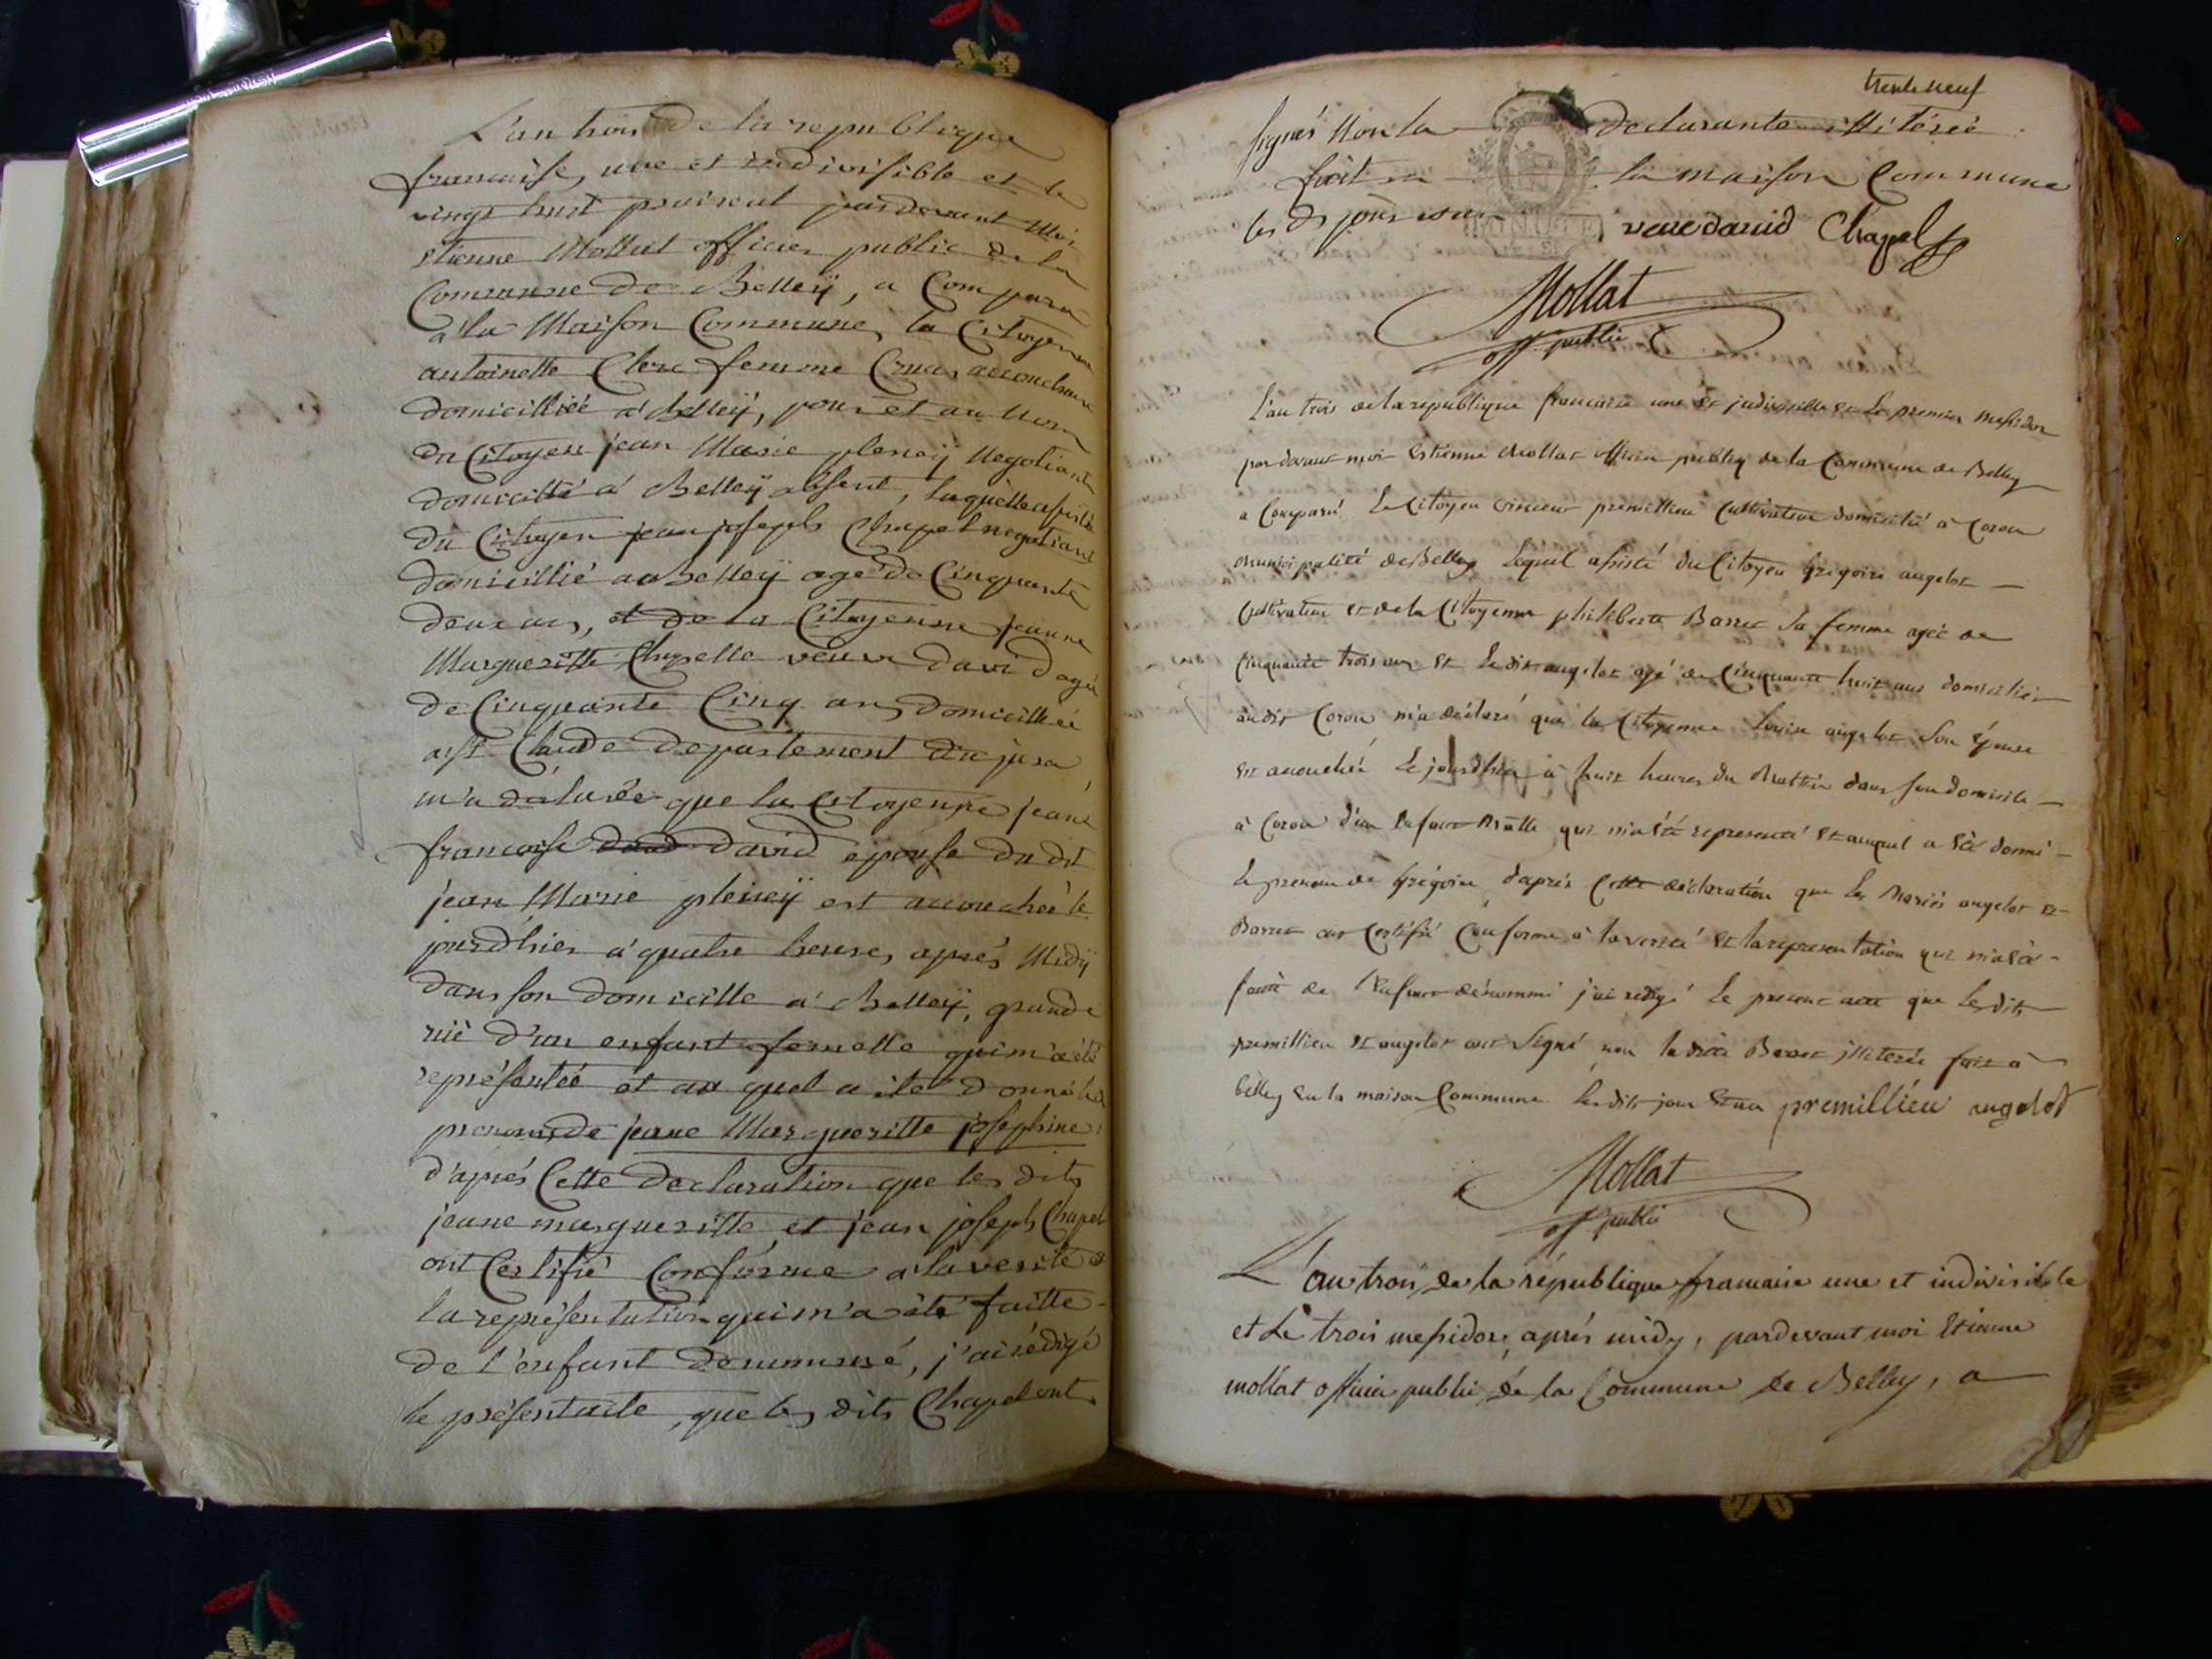 L'an trois de la republique
francaise, une et indivisible et le
vingt huit prairial pardevant moi
etienne Mollat officier public de la
Commune de Belleÿ, a Comparu
a la Maison Commune, la Citoyenne
antoinette Clerc femme accoucheuse
domicilliée a Belleÿ, pour et au nom
du Citoyen jean Marie plencÿ Negotiant
domicillié a Belleÿ absent, laquelle assistée
du Citoyen jean joseph Chapel negotiant
domicillié a Belleÿ agé de Cinquante
deux ans, et de la Citoyenne jeanne
Margueritte Chapelle veuve david agée
de Cinquante Cinq ans domicilliée
a st Claude departement du jura
m'a déclarée que la Citoyenne jeane
francoise david épouse du dit
jean Marie plencÿ est accouchée le
jourdhier a quatre heures aprés Midÿ
dans son domicille a Belleÿ, grande
ruë d'un enfant femelle qui m'a été
représentée et au quel a été donné les
prenoms de jeane Margueritte josephine
d'aprés Cette declaration que les dits
jeane margueritte et jean joseph Chapel
ont Certifié Conforme a la verité et
la représentation qui m'a été faitte
de l'enfant denommé, j'ai rédigé
le présent acte, que les dits Chapel ont
trente neuf
signés Non la declarante illitérée
fait en la maison Commune
les ds jours et an veuve david Chapel
Mollat
off public
L'an trois de la republique francaise une et indivisible et le premier messidor
par devant moi Estienne Mollat officier public de la Commune de Belley
a Comparu le Citoyen vincent premillieu Cultivateur domicilié a Coron
municipalité de Belley lequel assisté du Citoyen Grégoire angelot
Cultivateur et de la Citoyenne philiberte Barret sa femme agée de
Cinquante trois ans et le dit angelot agé de Cinquante huit ans domiciliés
audit Coron m'a déclaré que la Citoyenne Louise angelot son épouse
est accouchée le jourdhier a huit heures du Mattin dans son domicile
a Coron d'un Enfant Mâlle qui m'a été representé et auquel a été donné
le prenom de Grégoire d'aprés Cette déclaration que les Mariés angelot et
Barret ont Certifié Conforme a la verité et la representation qui m'a été
faitte de l'Enfant dénommé j'ai redigé le present acte que lesdits
premillieu et angelot ont signé non la dite Barret illiterée fait a
Belley en la maison Commune les dits jour et an premillieu angelot
Mollat
off public
L'an trois de la république francaise une et indivisible
et le trois messidor, aprés midy, pardevant moi Etienne
mollat officier public de la Commune de Belley, a